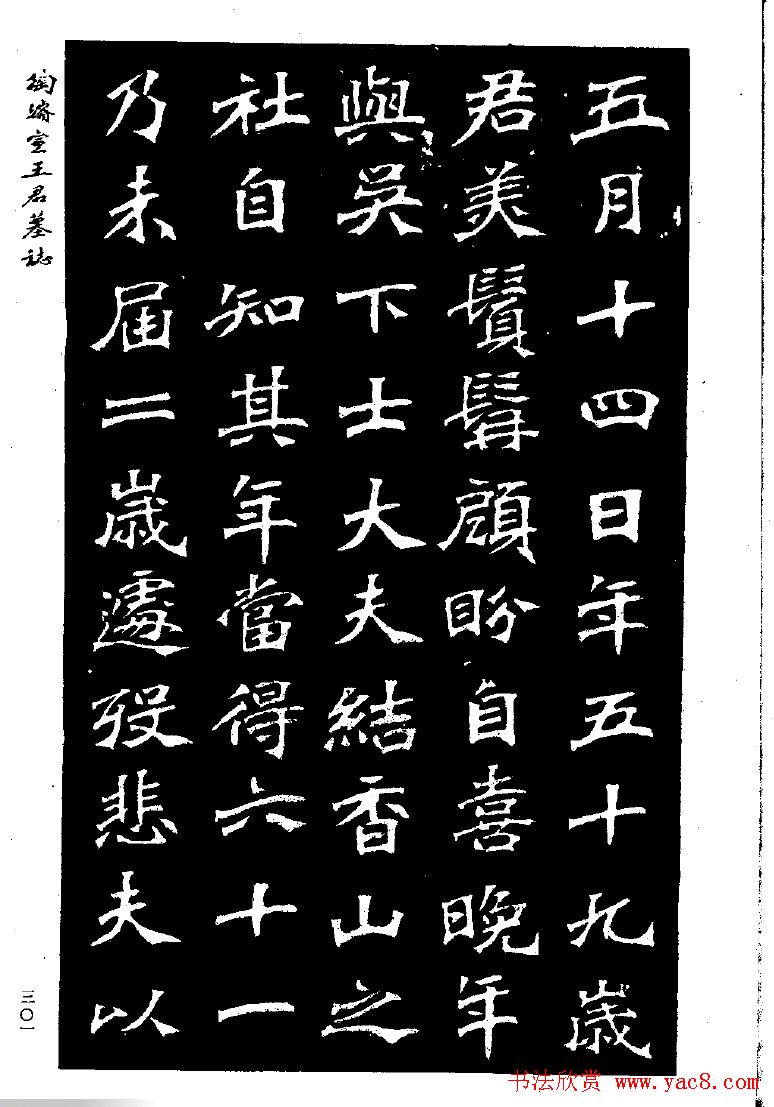 五月十四日年五十九歲
君美鬢髯顧盼自喜晚年
與吳下士大夫結香山之
社自知其年當得六十一
乃未届二歲遽歿悲夫以
陶濬宣王君墓誌
三〇一
书法欣赏 www.yac8.com